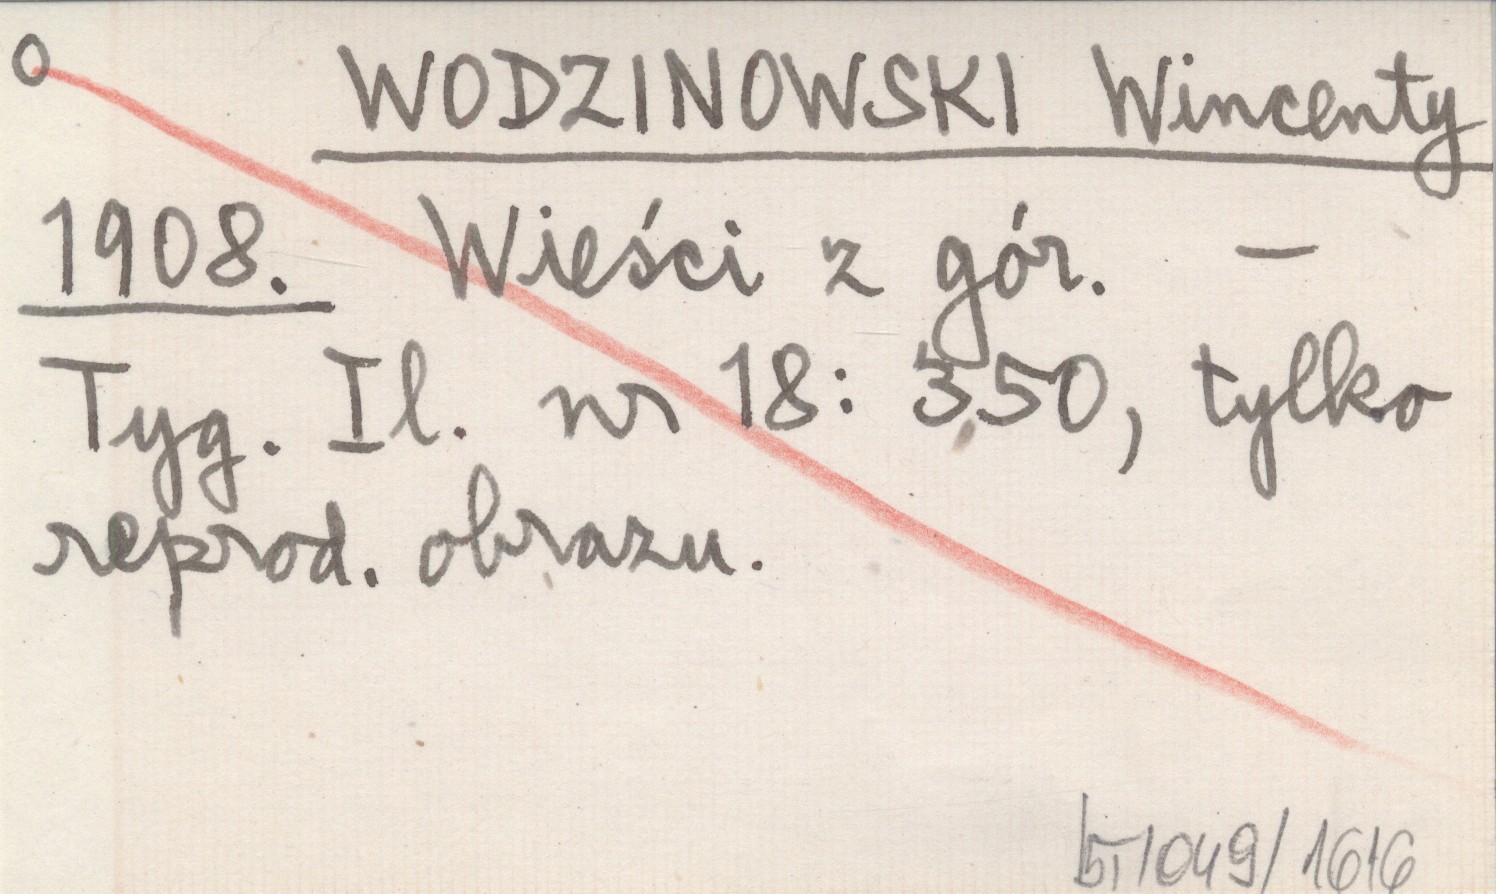 O WODZINOWSKI Wincenty
1908. Wieści z gór. –
Tyg. Il. nr 18: 350, tylko
reprod. obrazu.
1049/1616